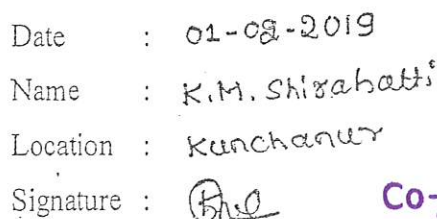 Date : 01-02-2019
Name : K.M. Shirahatti
Location : Kunchanur
Signature :
Co-